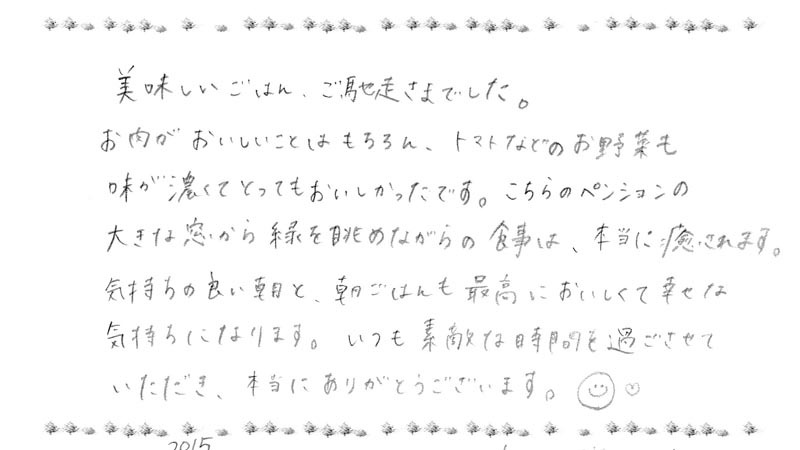 美味しいごはん、ご馳走さまでした。
お肉が おいしいことはもちろん、トマトなどのお野菜も
味が濃くてとってもおいしかったです。こちらのペンションの
大きな窓から緑を眺めながらの食事は、本当に癒されます。
気持ちの良い朝と、朝ごはんも最高においしくて幸せな
気持ちになります。いつも素敵な時間を過ごさせて
いただき、本当にありがとうございます。
2015